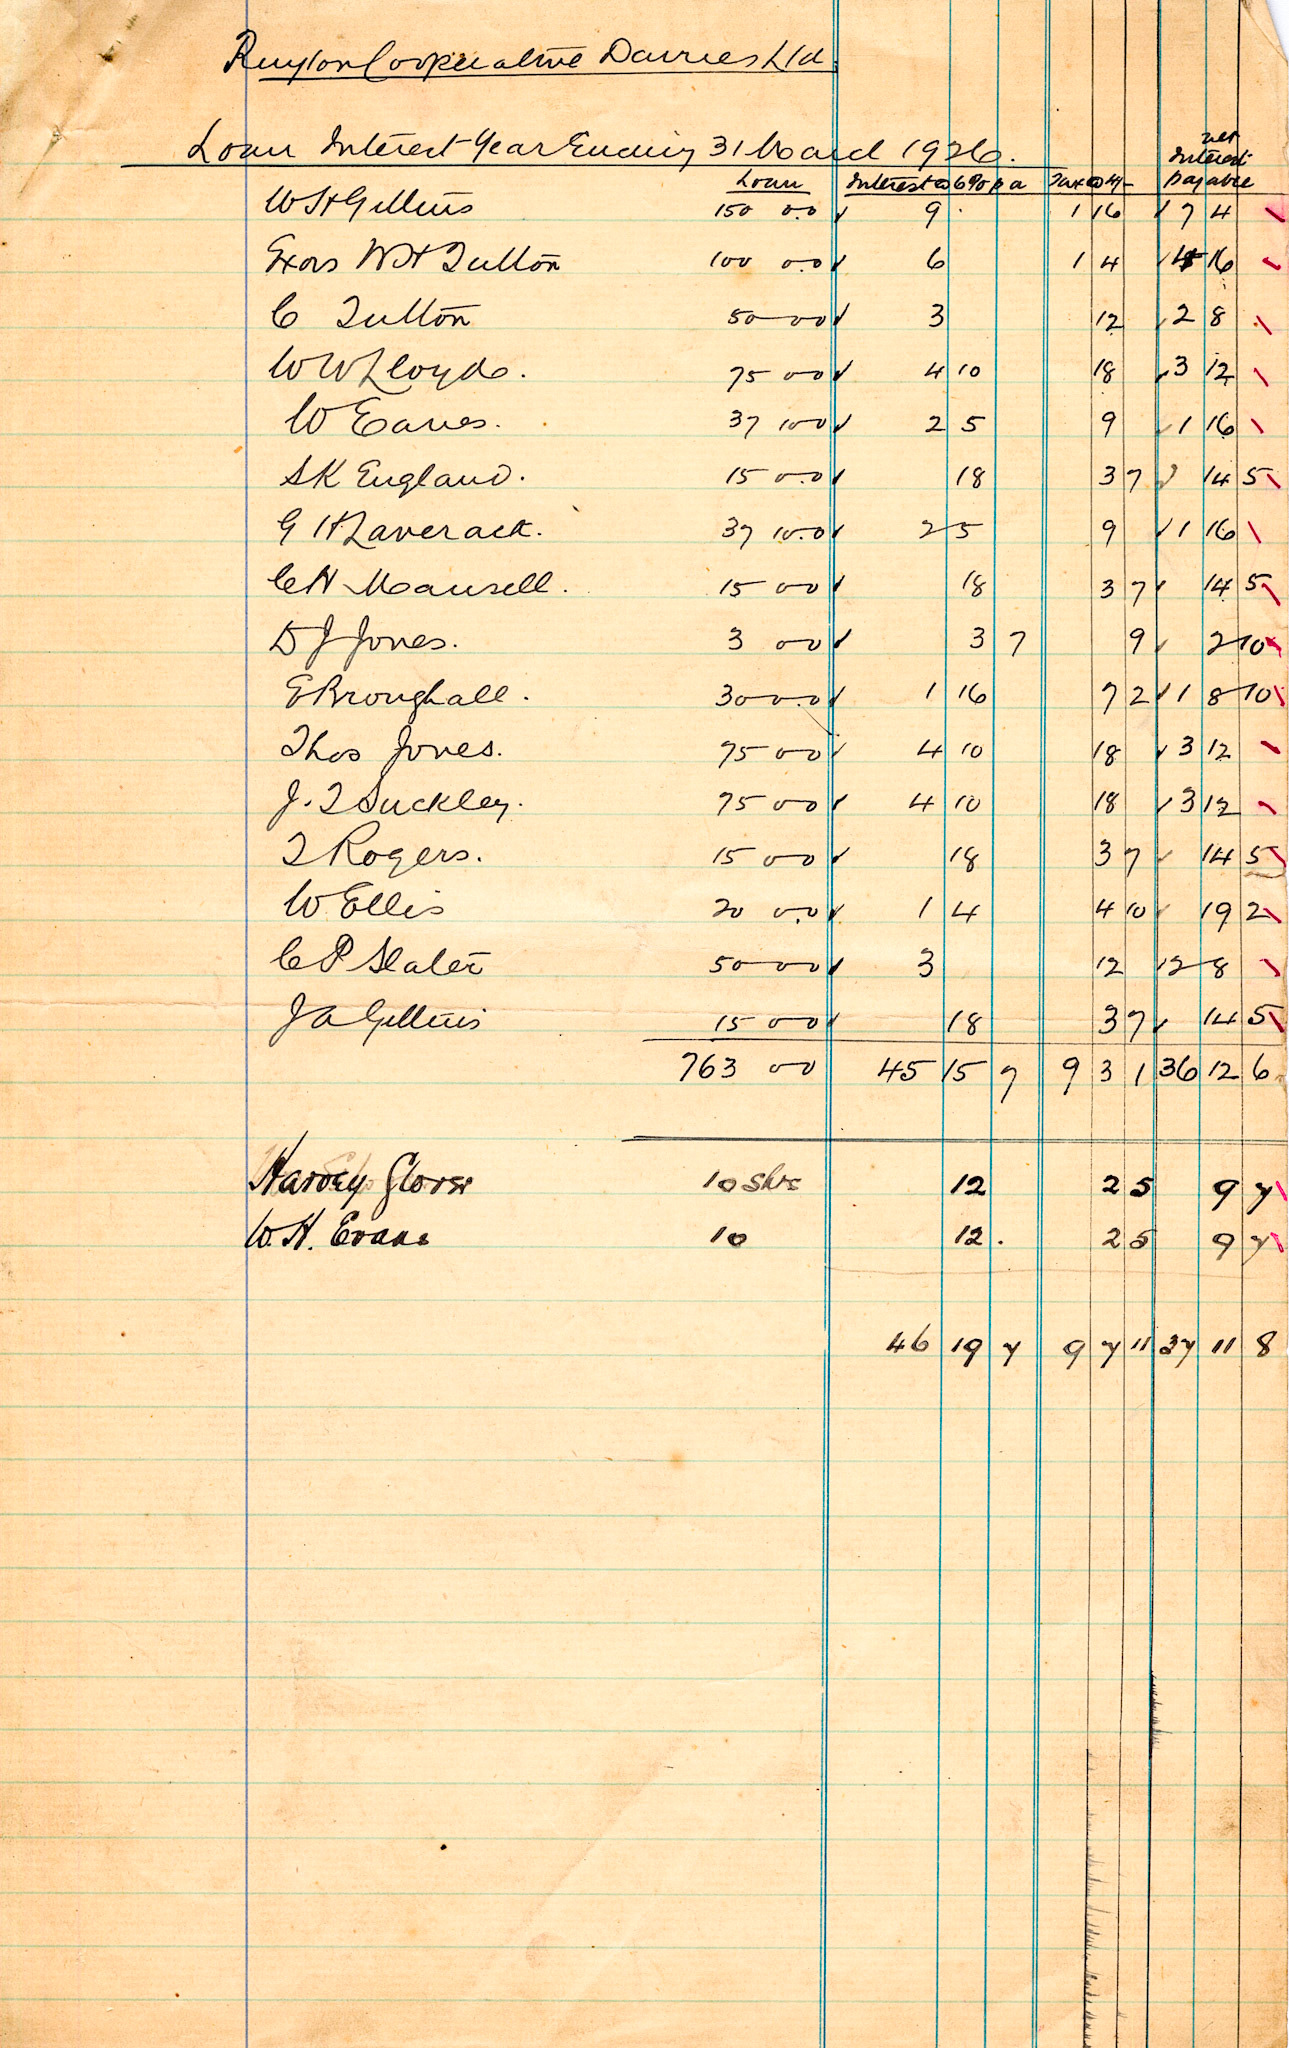 Ruyton Cooperative Dairies Ltd
Loan Interest Year Ending 31 March 1926.
Loan Interest @ 6% p a Tax @ 4/- Net Interest payable
W H Gittins 150 0.0 9 . 1 16 7 4
Exors W H Tutton 100 0.0 6 1 4 4 16
C Tutton 50 0 0 3 12 2 8
W W Lloyd. 75 0 0 4 10 18 3 12
W Eaves. 37 10 0 2 5 9 1 16
S K England. 15 0.0 18 3 7 14 5
G H Laverack. 37 10.0 2 5 9 1 16
C H Mansell. 15 0 0 18 3 7 14 5
D J Jones. 3 0 0 3 7 9 2 10
E Broughall. 30 0.0 1 16 7 2 1 8 10
Thos Jones. 75 0 0 4 10 18 3 12
J. T Suckley. 75 0 0 4 10 18 3 12
T Rogers. 15 0 0 18 3 7 14 5
W Ellis 20 0.0 1 4 4 10 19 2
C P Slater 50 0 0 3 12 2 8
J A Gittins 15 0 0 18 3 7 14 5
763 0 0 45 15 7 9 3 1 36 12 6
Harvey 10 shs 12 2 5 9 7
W. H. Evans 10 12 . 2 5 9 7
46 19 7 9 7 11 37 11 8